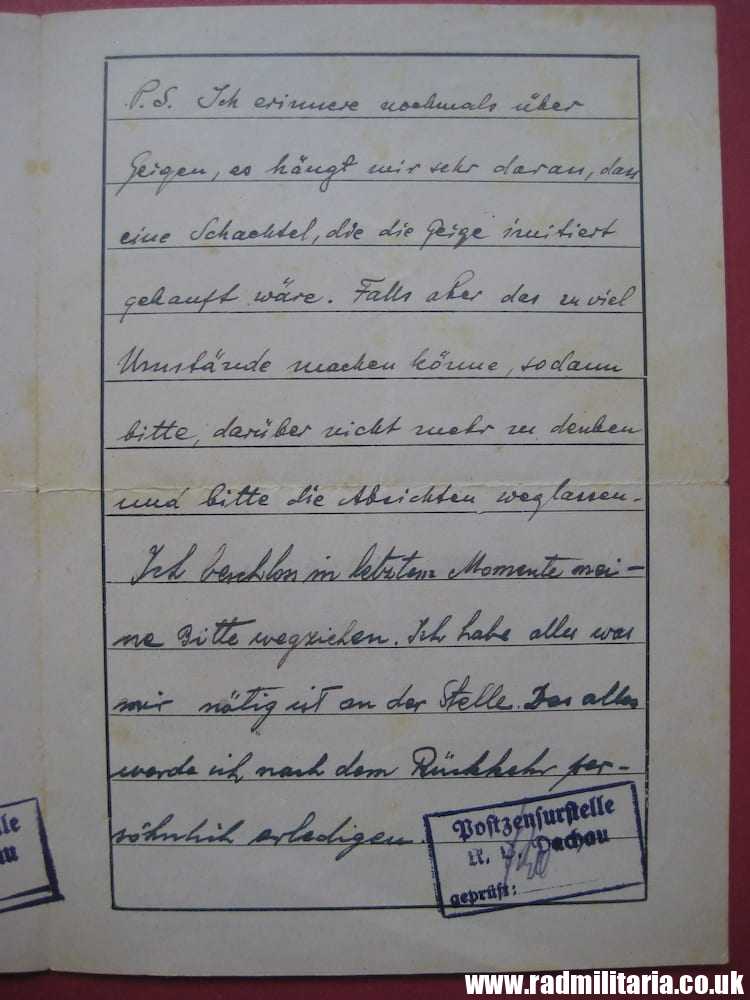 P.S. Ich erinnere nochmals über
Geigen, es hängt mir sehr daran, dass
eine Schachtel, die die Geige imitiert
gekauft wäre. Falls aber das zu viel
Umstände machen könne, sodann
bitte, darüber nicht mehr zu denken
und bitte die Absichten weglassen.
Ich beschloss in letztem Momente mei-
ne Bitte wegziehen. Ich habe alles was
mir nötig ist an der Stelle. Das alles
werde ich nach dem Rückkehr per-
söhnlich erledigen.
Postzensurstelle
K. L. Dachau
geprüft:
lle
au
www.radmilitaria.co.uk